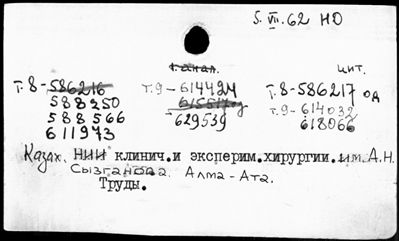 5. VII. 62 НО
1.анал.
цит.
т.8-586216 т.9-61449Д т.8-586217 од
588250 615517од т.9-614032
588566 629539 618066
611973
Казах. НИИ клинич.и эксперим.хирургии.им.А.Н.
Сызганова. Алма-Ата.
Труды.